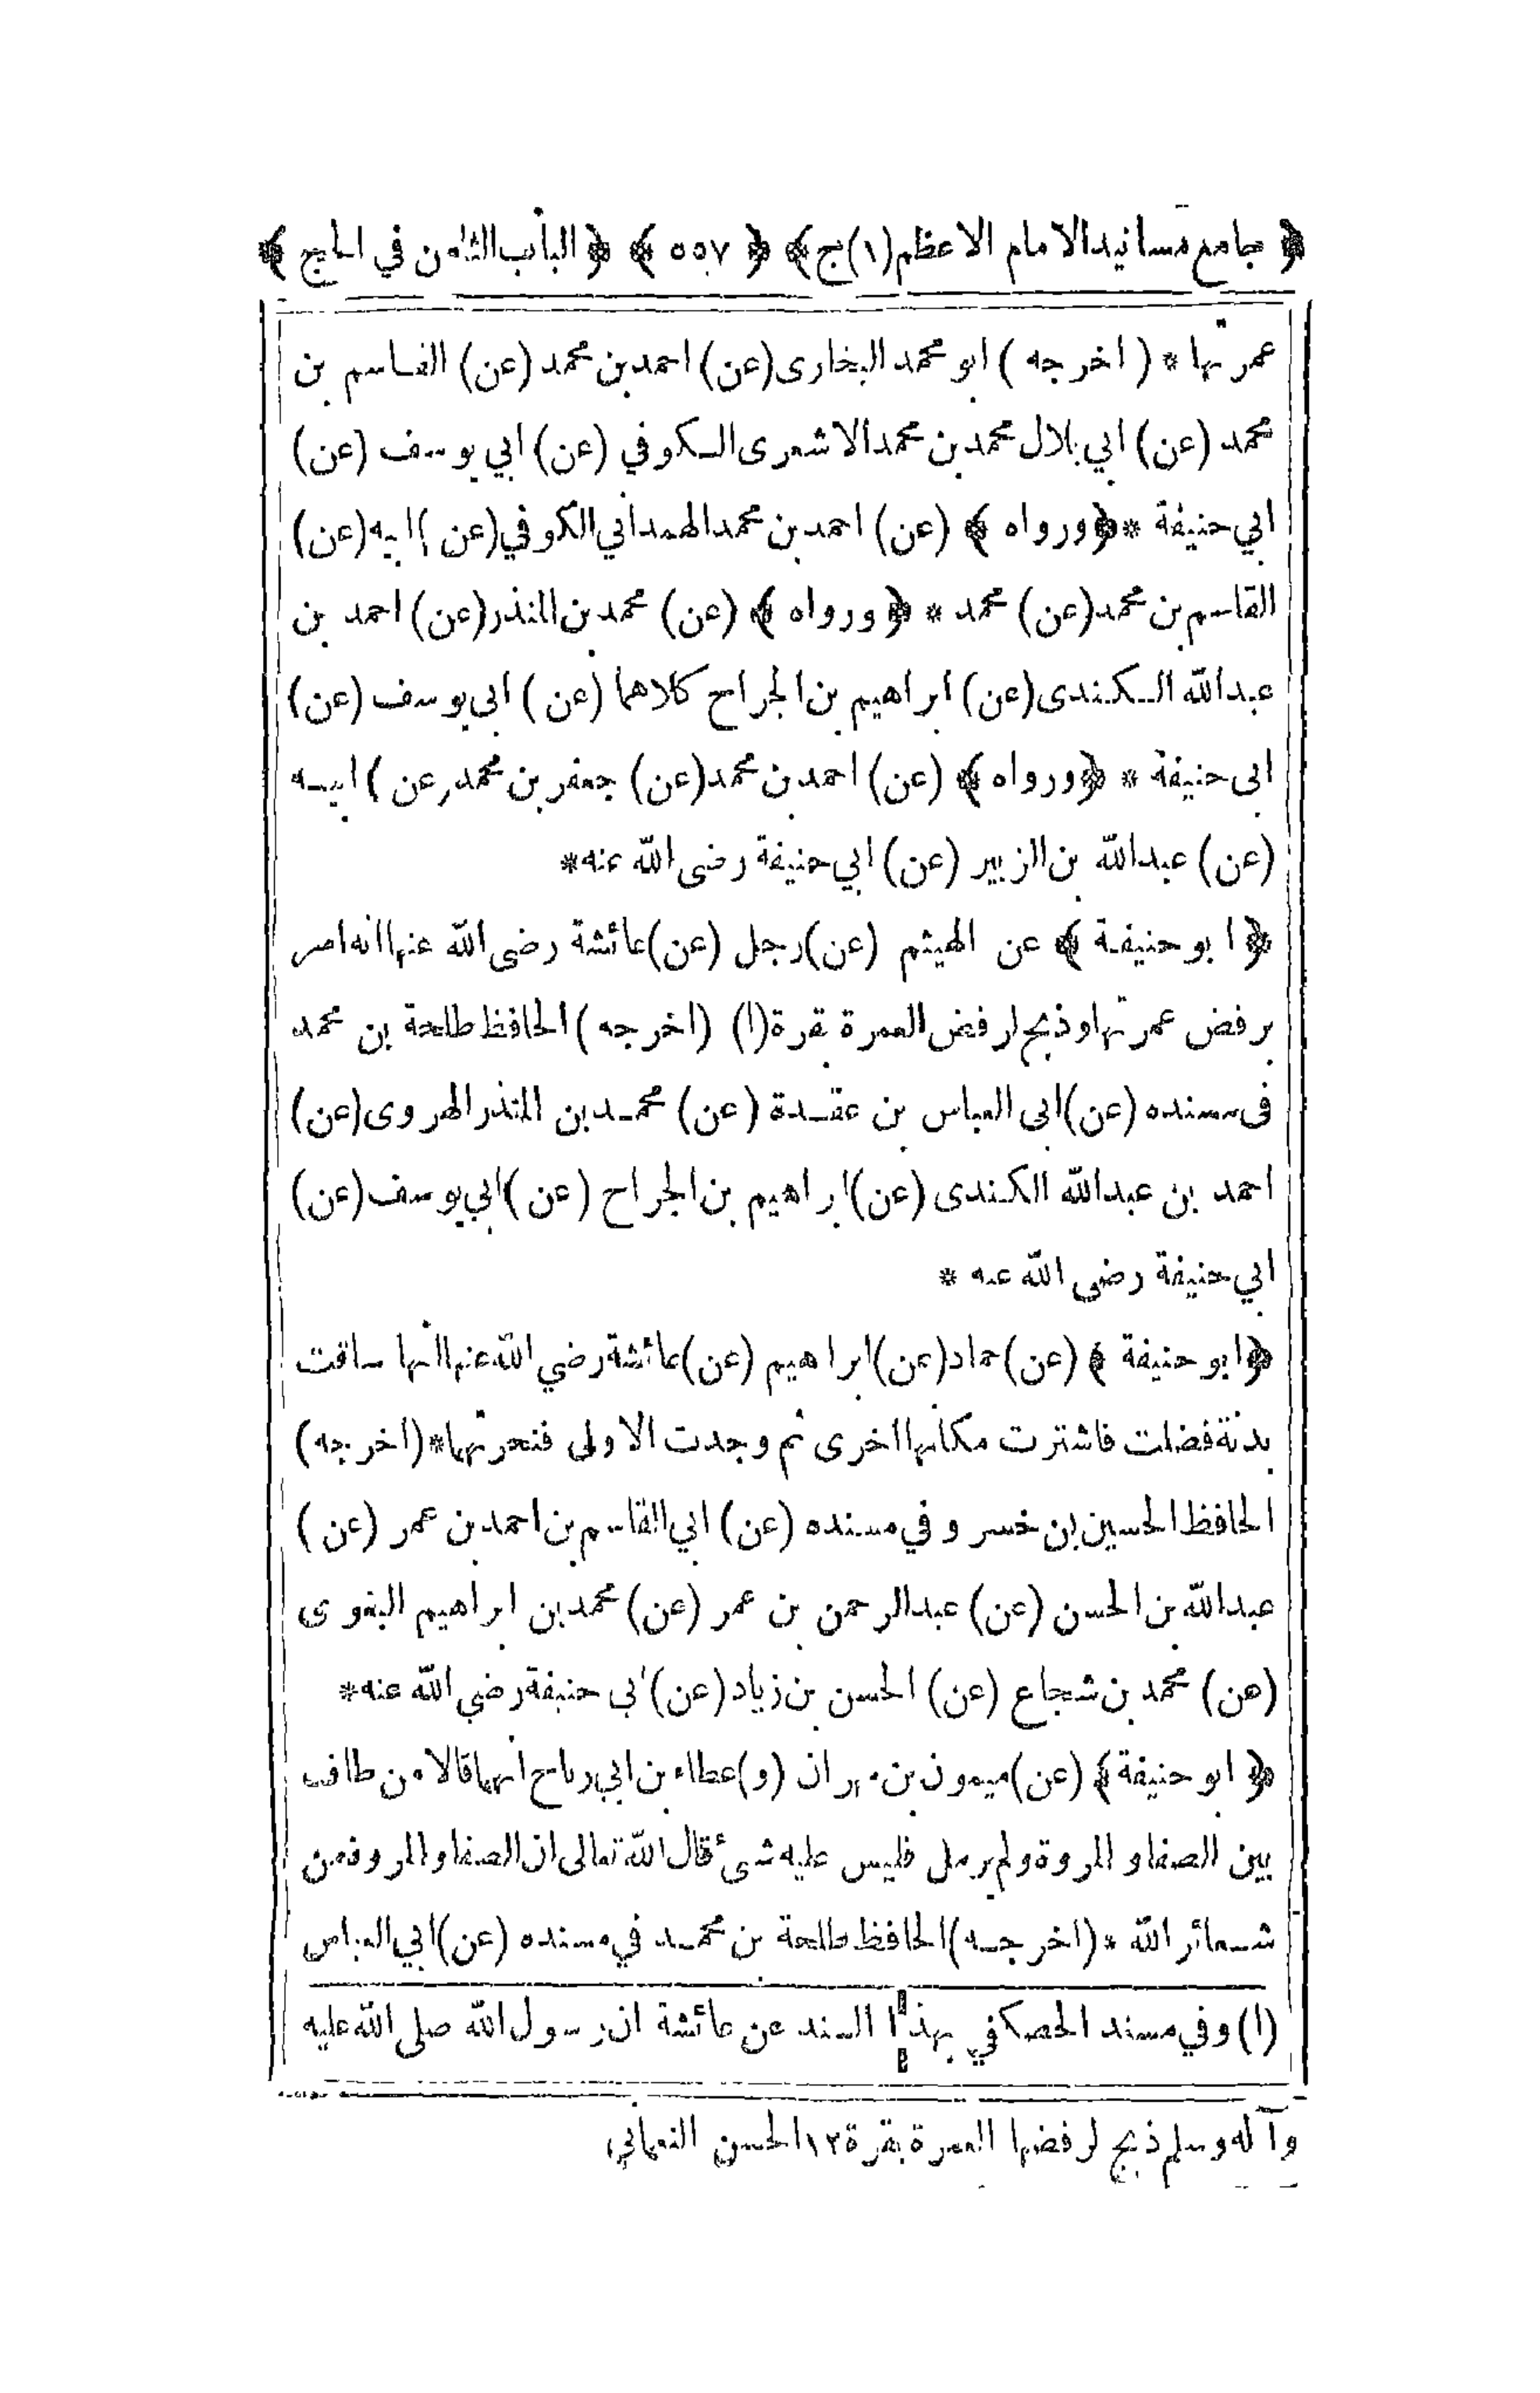 ﴿ جامع مسانيد الامام الاعظم (١) ج ﴾ ﴿ ٥٥٧ ﴾ ﴿ الباب الثامن في الحج ﴾
عمرتها * ( اخرجه ) ابو محمد البخارى (عن) احمد بن محمد (عن) القاسم بن
محمد (عن) ابي بلال محمد بن محمد الاشعرى الكوفي (عن) ابي يوسف (عن)
ابي حنيفة * ﴿ ورواه ﴾ (عن) احمد بن محمد الهمداني الكوفي (عن) ابيه (عن)
القاسم بن محمد (عن) محمد * ﴿ ورواه ﴾ (عن) محمد بن المنذر (عن) احمد بن
عبد الله الكندى (عن) ابراهيم بن الجراح كلاهما (عن) ابى يوسف (عن)
ابى حنيفة * ﴿ ورواه ﴾ (عن) احمد بن محمد (عن) جعفر بن محمد (عن) ابيه
(عن) عبد الله بن الزبير (عن) ابي حنيفة رضى الله عنه *
﴿ ابو حنيفة ﴾ عن الهيثم (عن) رجل (عن) عائشة رضى الله عنها انه امر
برفض عمرتها وذبح لرفض العمرة بقرة (١) (اخرجه) الحافظ طلحة بن محمد
فى مسنده (عن) ابى العباس بن عقدة (عن) محمد بن المنذر الهروى (عن)
احمد بن عبد الله الكندى (عن) ابراهيم بن الجراح (عن) ابي يوسف (عن)
ابي حنيفة رضي الله عنه *
﴿ ابو حنيفة ﴾ (عن) حماد (عن) ابراهيم (عن) عائشة رضي الله عنها انها ساقت
بدنة فضلت فاشترت مكانها اخرى ثم وجدت الاولى فنحرتهما * (اخرجه)
الحافظ الحسين بن خسرو في مسنده (عن) ابي القاسم بن احمد بن عمر (عن)
عبد الله بن الحسن (عن) عبد الرحمن بن عمر (عن) محمد بن ابراهيم البغوى
(عن) محمد بن شجاع (عن) الحسن بن زياد (عن) ابى حنيفة رضي الله عنه *
﴿ ابو حنيفة ﴾ (عن) ميمون بن مهران (و) عطاء بن ابي رباح انهما قالا من طاف
بين الصفا والمروة ولم يرمل فليس عليه شىء قال الله تعالى ان الصفا والمروة من
شعائر الله * (اخرجه) الحافظ طلحة بن محمد في مسنده (عن) ابي العباس
(١) وفي مسند الحصكفي بهذا السند عن عائشة ان رسول الله صلى الله عليه
وآله وسلم ذبح لرفضها العمرة بقرة ١٢ الحسن النعماني